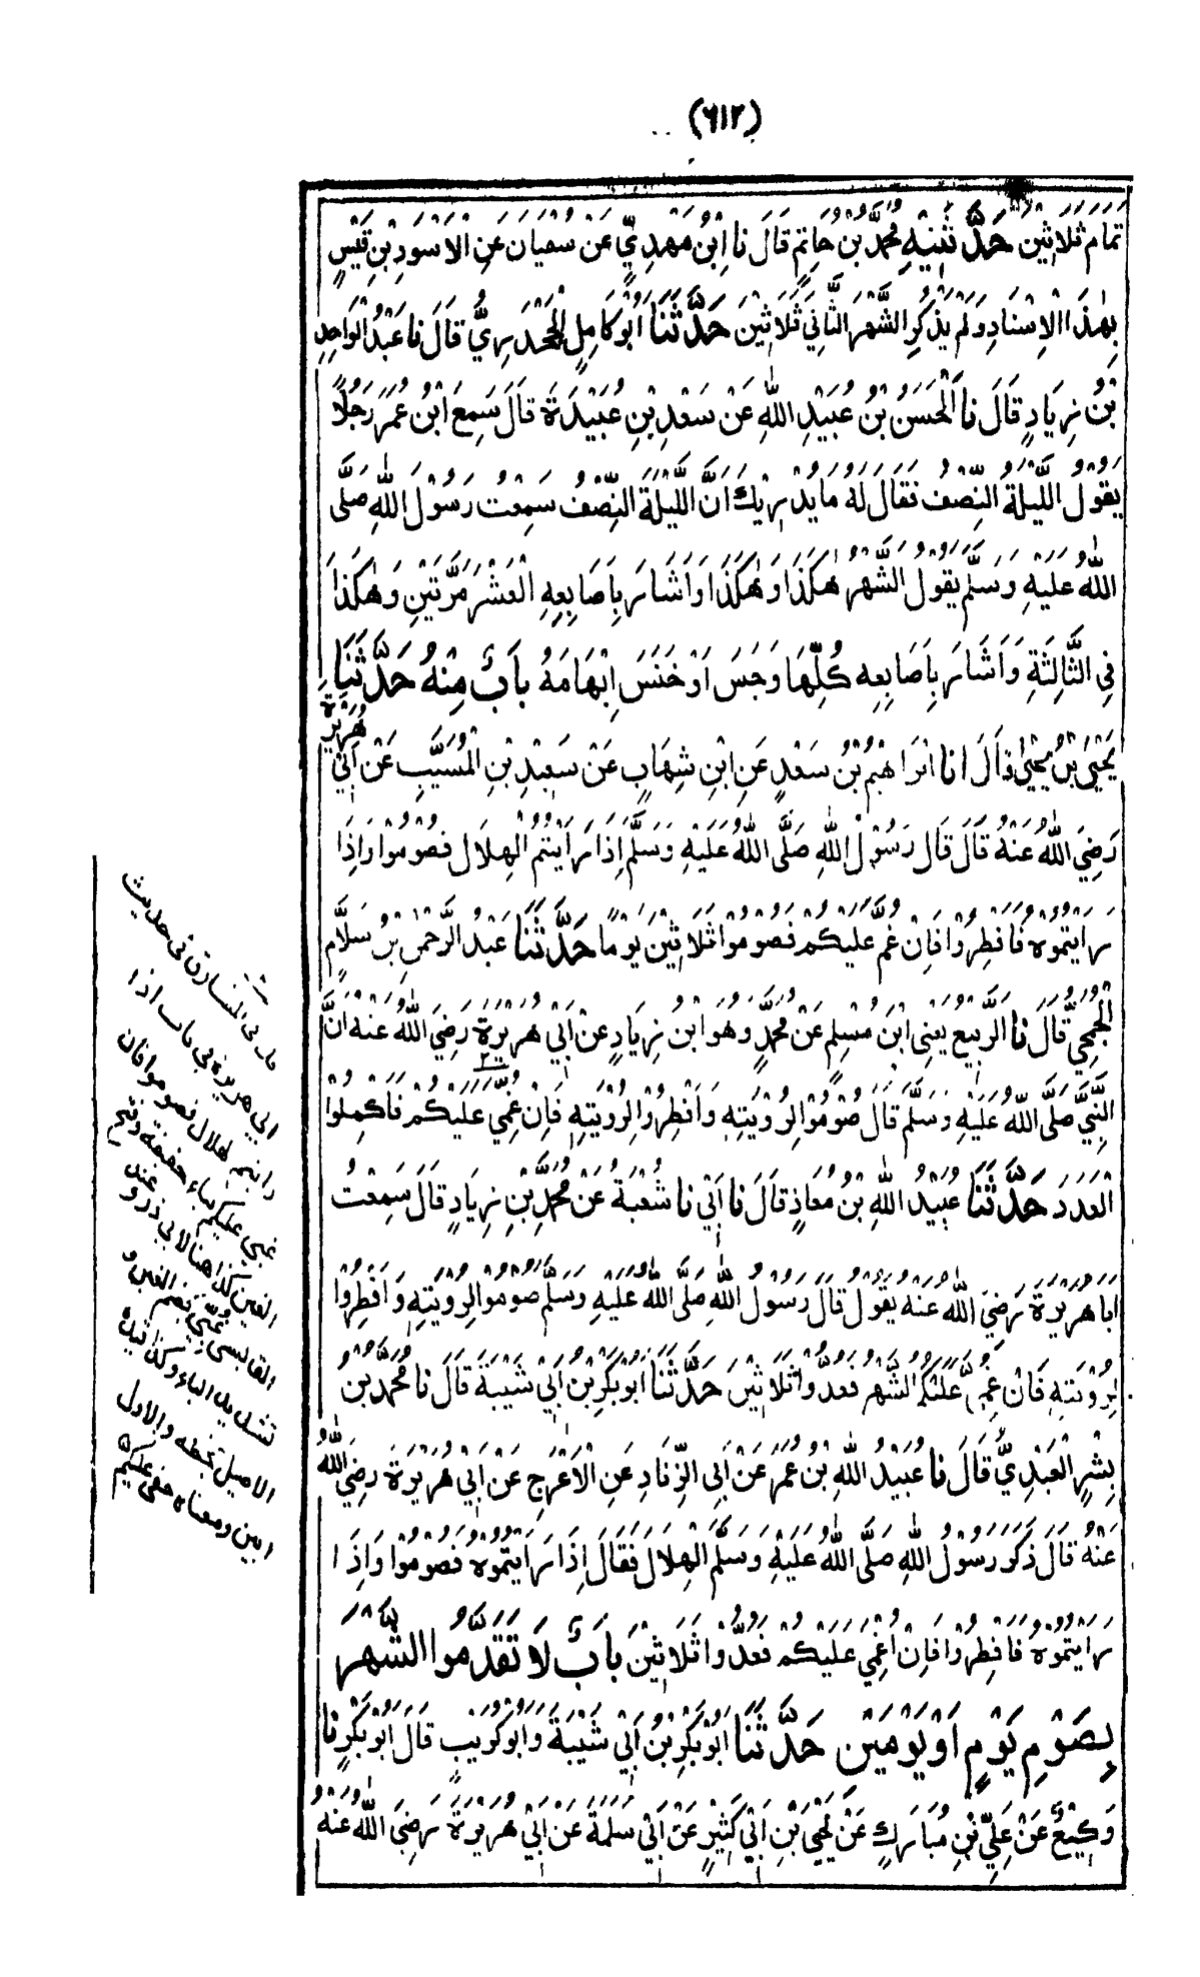 (٦١٢)
تَمَامَ ثَلَاثِيْنَ حَدَّثَنِيْهِ مُحَمَّدُ بْنُ حَاتِمٍ قَالَ نَا ابْنُ مَهْدِيٍّ عَنْ سُفْيَانَ عَنِ الْاَسْوَدِ بْنِ قَيْسٍ
بِهٰذَا الْاِسْنَادِ وَلَمْ يَذْكُرِ الشَّهْرَ الثَّانِيَ ثَلَاثِيْنَ حَدَّثَنَا اَبُوْ كَامِلٍ الْجَحْدَرِيُّ قَالَ نَا عَبْدُ الْوَاحِدِ
بْنُ زِيَادٍ قَالَ نَا الْحَسَنُ بْنُ عُبَيْدِ اللّٰهِ عَنْ سَعْدِ بْنِ عُبَيْدَةَ قَالَ سَمِعَ ابْنُ عُمَرَ رَجُلًا
يَقُوْلُ اللَّيْلَةُ النِّصْفُ فَقَالَ لَهُ مَا يُدْرِيْكَ اَنَّ اللَّيْلَةَ النِّصْفُ سَمِعْتُ رَسُوْلَ اللّٰهِ صَلَّى
اللّٰهُ عَلَيْهِ وَسَلَّمَ يَقُوْلُ الشَّهْرُ هٰكَذَا وَهٰكَذَا وَاَشَارَ بِاَصَابِعِهِ الْعَشْرِ مَرَّتَيْنِ وَهٰكَذَا
فِي الثَّالِثَةِ وَاَشَارَ بِاَصَابِعِهِ كُلِّهَا وَحَبَسَ اَوْ خَنَسَ اِبْهَامَهُ بَابٌ مِنْهُ حَدَّثَنَا
يَحْيَى بْنُ يَحْيٰى قَالَ انا اِبْرَاهِيْمُ بْنُ سَعْدٍ عَنِ ابْنِ شِهَابٍ عَنْ سَعِيْدِ بْنِ الْمُسَيَّبِ عَنْ اَبِيْ هُرَيْرَةَ
رَضِيَ اللّٰهُ عَنْهُ قَالَ قَالَ رَسُوْلُ اللّٰهِ صَلَّى اللّٰهُ عَلَيْهِ وَسَلَّمَ اِذَا رَاَيْتُمُ الْهِلَالَ فَصُوْمُوْا وَاِذَا
رَاَيْتُمُوْهُ فَاَفْطِرُوْا فَاِنْ غُمَّ عَلَيْكُمْ فَصُوْمُوْا ثَلَاثِيْنَ يَوْمًا حَدَّثَنَا عَبْدُ الرَّحْمٰنِ بْنُ سَلَّامٍ
الْجُمَحِيُّ قَالَ نَا الرَّبِيْعُ يَعْنِي ابْنَ مُسْلِمٍ عَنْ مُحَمَّدٍ وَهُوَ ابْنُ زِيَادٍ عَنْ اَبِيْ هُرَيْرَةَ رَضِيَ اللّٰهُ عَنْهُ اَنَّ
النَّبِيَّ صَلَّى اللّٰهُ عَلَيْهِ وَسَلَّمَ قَالَ صُوْمُوْا لِرُؤْيَتِهِ وَاَفْطِرُوْا لِرُؤْيَتِهِ فَاِنْ غُمِّيَ عَلَيْكُمْ فَاَكْمِلُوا
الْعَدَدَ حَدَّثَنَا عُبَيْدُ اللّٰهِ بْنُ مُعَاذٍ قَالَ نَا اَبِيْ نَا شُعْبَةُ عَنْ مُحَمَّدِ بْنِ زِيَادٍ قَالَ سَمِعْتُ
اَبَا هُرَيْرَةَ رَضِيَ اللّٰهُ عَنْهُ يَقُوْلُ قَالَ رَسُوْلُ اللّٰهِ صَلَّى اللّٰهُ عَلَيْهِ وَسَلَّمَ صُوْمُوْا لِرُؤْيَتِهِ وَاَفْطِرُوْا
لِرُؤْيَتِهِ فَاِنْ غُمِّيَ عَلَيْكُمُ الشَّهْرُ فَعُدُّوْا ثَلَاثِيْنَ حَدَّثَنَا اَبُوْ بَكْرِ بْنُ اَبِيْ شَيْبَةَ قَالَ نَا مُحَمَّدُ بْنُ
بِشْرٍ الْعَبْدِيُّ قَالَ نَا عُبَيْدُ اللّٰهِ بْنُ عُمَرَ عَنْ اَبِي الزِّنَادِ عَنِ الْاَعْرَجِ عَنْ اَبِيْ هُرَيْرَةَ رَضِيَ اللّٰهُ
عَنْهُ قَالَ ذَكَرَ رَسُوْلُ اللّٰهِ صَلَّى اللّٰهُ عَلَيْهِ وَسَلَّمَ الْهِلَالَ فَقَالَ اِذَا رَاَيْتُمُوْهُ فَصُوْمُوْا وَاِذَا
رَاَيْتُمُوْهُ فَاَفْطِرُوْا فَاِنْ اُغْمِيَ عَلَيْكُمْ فَعُدُّوْا ثَلَاثِيْنَ بَابٌ لَا تَقَدَّمُوا الشَّهْرَ
بِصَوْمِ يَوْمٍ اَوْ يَوْمَيْنِ حَدَّثَنَا اَبُوْ بَكْرِ بْنُ اَبِيْ شَيْبَةَ وَاَبُوْ كُرَيْبٍ قَالَ اَبُوْ بَكْرٍ نَا
وَكِيْعٌ عَنْ عَلِيِّ بْنِ مُبَارَكٍ عَنْ يَحْيَى بْنِ اَبِيْ كَثِيْرٍ عَنْ اَبِيْ سَلَمَةَ عَنْ اَبِيْ هُرَيْرَةَ رَضِيَ اللّٰهُ عَنْهُ
قال في المشارق في حديث
ابي هريرة في باب اذا
رايتم الهلال فصوموا فان
غبي عليكم بباء خفيفة وفتح
الغين كذا هنا لابي ذر وعند
القابسي غُبِّيَ بضم الغين و
تشديد الباء وكذا قيده
الاصيلي بخطه والاول
ابين ومعناه خفي عليكم